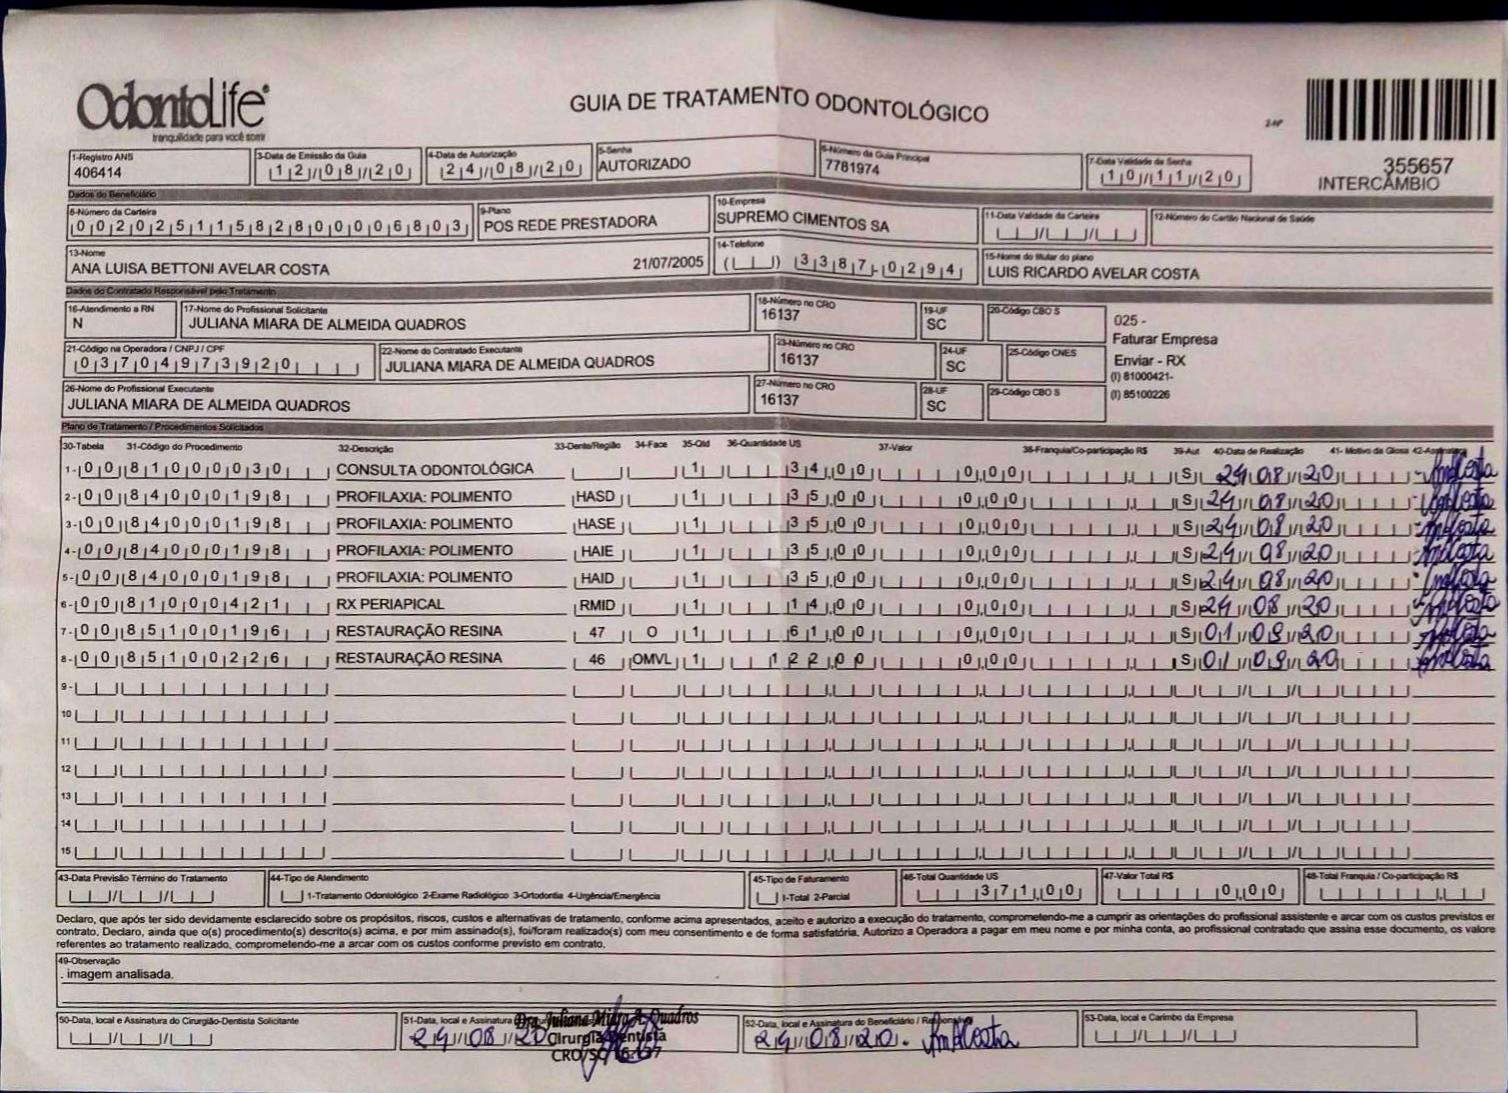 OdontoLife
tranquilidade para você sorrir
GUIA DE TRATAMENTO ODONTOLÓGICO
355657
INTERCÂMBIO
1-Registro ANS 3-Data de Emissão da Guia 4-Data de Autorização 5-Senha 6-Número da Guia Principal 7-Data Validade da Senha
406414 12/08/20 24/08/20 AUTORIZADO 7781974 10/11/20
Dados do Beneficiário
8-Número da Carteira 9-Plano 10-Empresa 11-Data Validade da Carteira 12-Número do Cartão Nacional de Saúde
00202511582800006803 POS REDE PRESTADORA SUPREMO CIMENTOS SA
13-Nome 14-Telefone 15-Nome do titular do plano
ANA LUISA BETTONI AVELAR COSTA 21/07/2005 ( ) 3387-0294 LUIS RICARDO AVELAR COSTA
Dados do Contratado Responsável pelo Tratamento
16-Atendimento a RN 17-Nome do Profissional Solicitante 18-Número no CRO 19-UF 20-Código CBO S
N JULIANA MIARA DE ALMEIDA QUADROS 16137 SC
025 -
Faturar Empresa
Enviar - RX
(I) 81000421-
(I) 85100226
21-Código na Operadora / CNPJ / CPF 22-Nome do Contratado Executante 23-Número no CRO 24-UF 25-Código CNES
03704973920 JULIANA MIARA DE ALMEIDA QUADROS 16137 SC
26-Nome do Profissional Executante 27-Número no CRO 28-UF 29-Código CBO S
JULIANA MIARA DE ALMEIDA QUADROS 16137 SC
Plano de Tratamento / Procedimentos Solicitados
30-Tabela 31-Código do Procedimento 32-Descrição 33-Dente/Região 34-Face 35-Qtd 36-Quantidade US 37-Valor 38-Franquia/Co-participação R$ 39-Aut 40-Data de Realização 41- Motivo da Glosa 42-Assinatura
1- 00 81000030 CONSULTA ODONTOLÓGICA 1 34,00 0,00 S 24/08/20
2- 00 84000198 PROFILAXIA: POLIMENTO HASD 1 35,00 0,00 S 24/08/20
3- 00 84000198 PROFILAXIA: POLIMENTO HASE 1 35,00 0,00 S 24/08/20
4- 00 84000198 PROFILAXIA: POLIMENTO HAIE 1 35,00 0,00 S 24/08/20
5- 00 84000198 PROFILAXIA: POLIMENTO HAID 1 35,00 0,00 S 24/08/20
6- 00 81000421 RX PERIAPICAL RMID 1 14,00 0,00 S 24/08/20
7- 00 85100196 RESTAURAÇÃO RESINA 47 O 1 61,00 0,00 S 01/09/20
8- 00 85100226 RESTAURAÇÃO RESINA 46 OMVL 1 122,00 0,00 S 01/09/20
9-
10
11
12
13
14
15
43-Data Previsão Término do Tratamento 44-Tipo de Atendimento 45-Tipo de Faturamento 46-Total Quantidade US 47-Valor Total R$ 48-Total Franquia / Co-participação R$
1-Tratamento Odontológico 2-Exame Radiológico 3-Ortodontia 4-Urgência/Emergência 1-Total 2-Parcial 371,00 0,00
Declaro, que após ter sido devidamente esclarecido sobre os propósitos, riscos, custos e alternativas de tratamento, conforme acima apresentados, aceito e autorizo a execução do tratamento, comprometendo-me a cumprir as orientações do profissional assistente e arcar com os custos previstos er
contrato. Declaro, ainda que o(s) procedimento(s) descrito(s) acima, e por mim assinado(s), foi/foram realizado(s) com meu consentimento e de forma satisfatória. Autorizo a Operadora a pagar em meu nome e por minha conta, ao profissional contratado que assina esse documento, os valore
referentes ao tratamento realizado, comprometendo-me a arcar com os custos conforme previsto em contrato.
49-Observação
. imagem analisada.
50-Data, local e Assinatura do Cirurgião-Dentista Solicitante 51-Data, local e Assinatura 52-Data, local e Assinatura do Beneficiário / 53-Data, local e Carimbo da Empresa
24/08/20 24/08/20
Dra. Juliana Miara A. Quadros
Cirurgiã Dentista
CRO/SC 16137